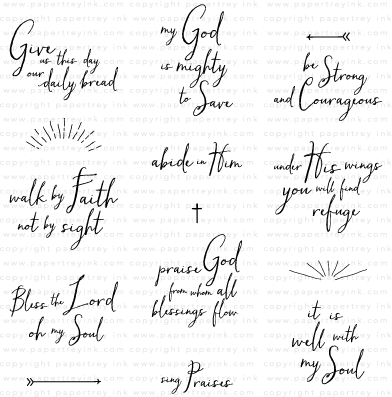 Give
us this day
our daily bread
my God
is mighty
to Save
be Strong
and Courageous
walk by Faith
not by sight
abide in Him
under His wings
you will find
refuge
praise God
from whom all
blessings flow
Bless the Lord
oh my Soul
it is
well with
my Soul
sing Praises
copyright papertrey ink
www.papertreyink.com